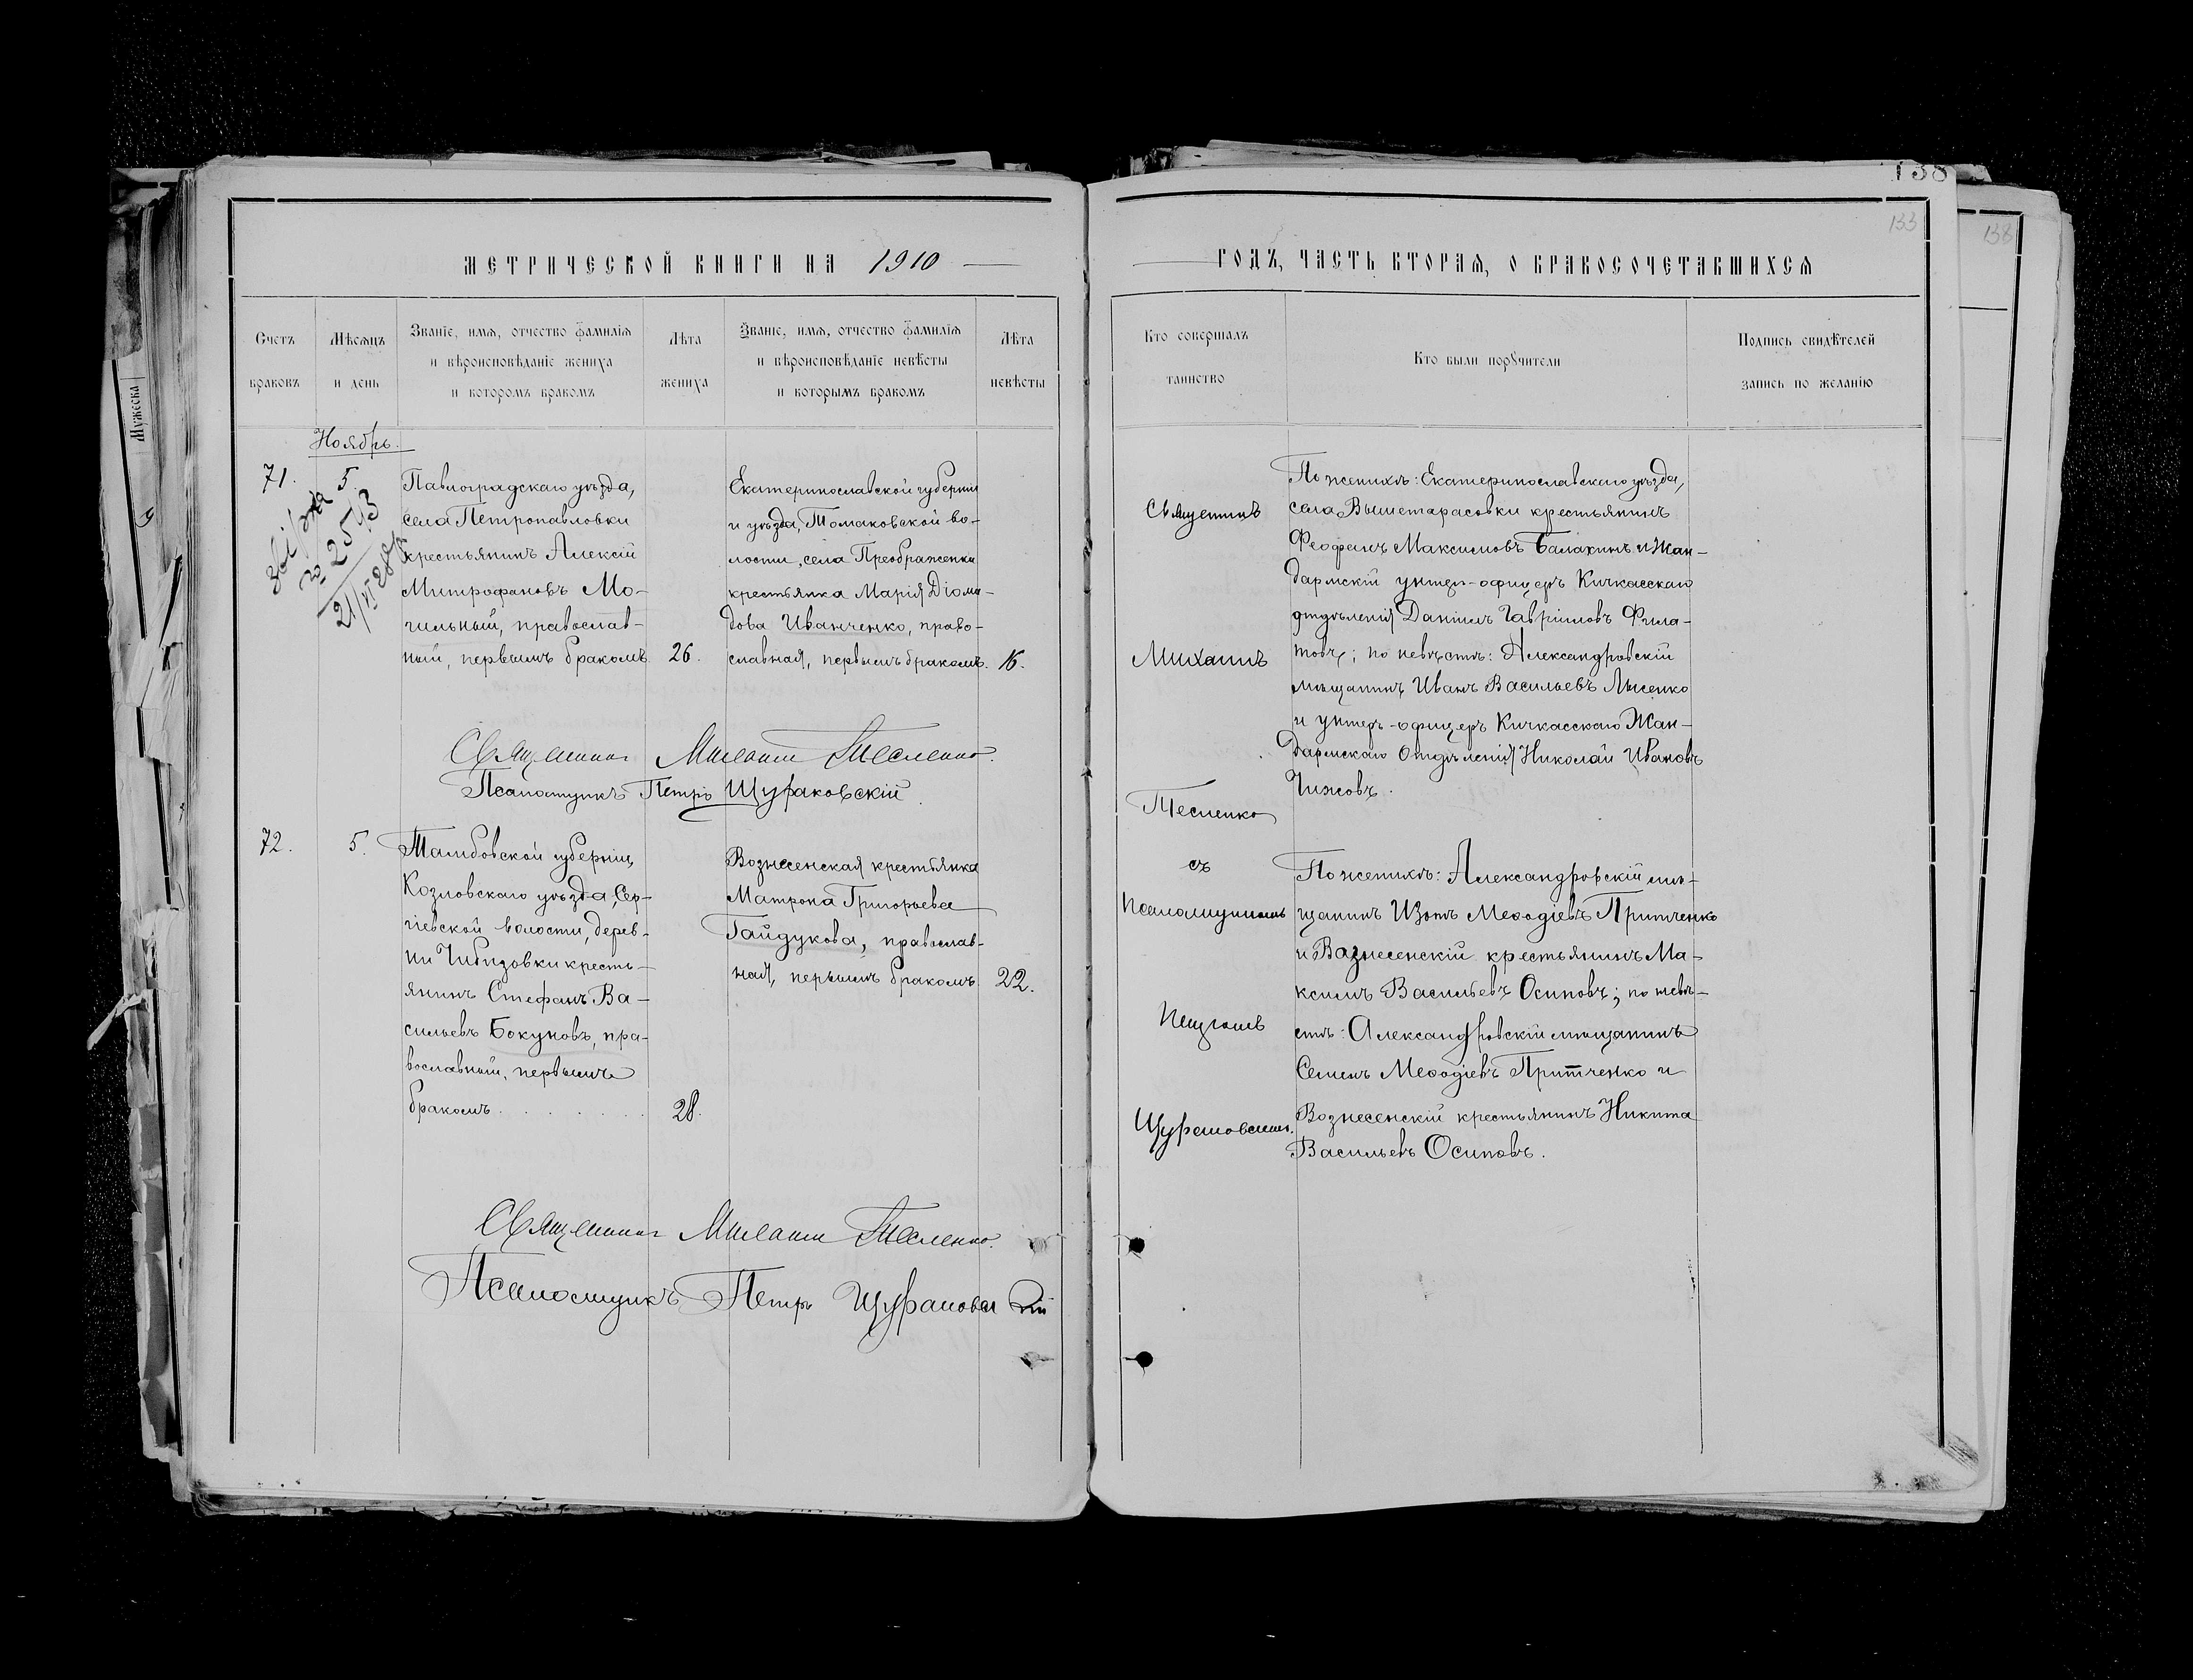 138
133
138
Мужеска
МЕТРИЧЕСКОЙ КНИГИ НА 1910
ГОДЪ, ЧАСТЬ ВТОРАЯ, О БРАКОСОЧЕТАВШИХСЯ
Счетъ
браковъ
Мѣсяцъ
и день
Званіе, имя, отчество фамилія
и вѣроисповѣданіе жениха
и которомъ бракомъ
Лѣта
жениха
Званіе, имя, отчество фамилія
и вѣроисповѣданіе невѣсты
и которымъ бракомъ
Лѣта
невѣсты
Кто совершалъ
таинство
Кто были поручители
Подпись свидѣтелей
запись по желанію
Ноябрь.
71.
5.
№ 2573
Павлоградскаго уѣзда,
села Петропавловки
крестьянинъ Алексій
Митрофановъ Мо-
гильный, православ-
ный, первымъ бракомъ
26.
Екатеринославской губерніи
и уѣзда, Томаковской во-
лости, села Преображенки
крестьянка Марія Діоми-
дова Иванченко, право-
славная, первымъ бракомъ.
16.
Священникъ Михаилъ Тесленко.
Псаломщикъ Петръ Щураковскій
72.
5.
Тамбовской губерніи,
Козловскаго уѣзда, Сер-
гіевской волости, дерев-
ни Чибизовки кресть-
янинъ Стефанъ Ва-
сильевъ Бокуновъ, пра-
вославный, первымъ
бракомъ
28.
Вознесенская крестьянка
Матрона Григорьева
Гайдукова, православ-
ная, первымъ бракомъ
22.
Священникъ Михаилъ Тесленко.
Псаломщикъ Петръ Щураковскій
Священникъ
Михаилъ
Тесленко
съ
псаломщикомъ
Петромъ
Щураковскимъ.
По женихѣ: Екатеринославскаго уѣзда,
села Вышетарасовки крестьянинъ
Феофанъ Максимовъ Балахинъ и Жан-
дармскій унтеръ-офицеръ Кичкасскаго
отдѣленія Даніилъ Гавріиловъ Фила-
товъ; по невѣстѣ: Александровскій
мѣщанинъ Иванъ Васильевъ Лысенко
и унтеръ-офицеръ Кичкасскаго Жан-
дармскаго Отдѣленія Николай Ивановъ
Чижовъ.
По женихѣ: Александровскій мѣ-
щанинъ Изотъ Меѳодіевъ Притченко
и Вознесенскій крестьянинъ Ма-
ксимъ Васильевъ Осиповъ; по невѣ-
стѣ: Александровскій мѣщанинъ
Семенъ Меѳодіевъ Притченко и
Вознесенскій крестьянинъ Никита
Васильевъ Осиповъ.